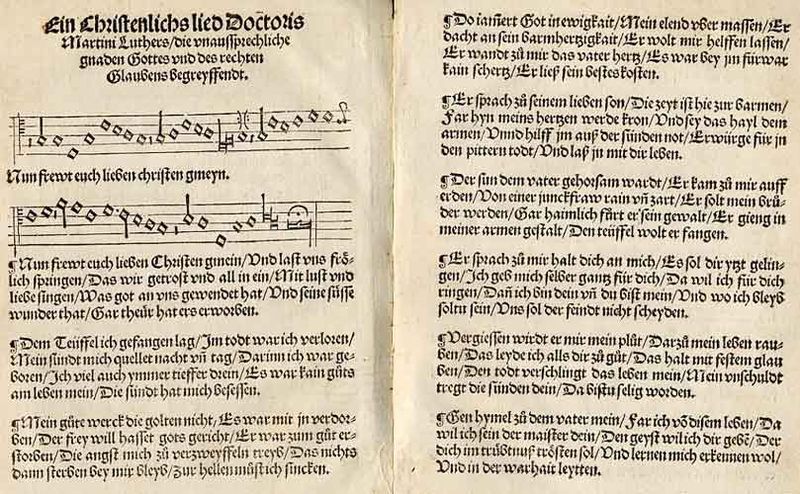 Ein Christenlichs lied Doctoris
Martini Luthers/die vnaussprechliche
gnaden Gottes vnd des rechten
Glaubens begreyffendt.
Nun frewt euch lieben christen gmeyn.
¶Nun frewt euch lieben Christen gmein/Vnd last vns frö⸗
lich springen/Das wir getrost vnd all in ein/Mit lust vnd
liebe singen/Was got an vns gewendet hat/Vnd seine süsse
wunder that/Gar theür hat ers erworben.
¶Dem Teüffel ich gefangen lag/Im todt war ich verloren/
Mein sündt mich quellet nacht vñ tag/Darinn ich war ge⸗
boren/Ich viel auch ymmer tieffer drein/Es war kain gůts
am leben mein/Die sündt hat mich besessen.
¶Mein gůte werck die golten nicht/Es war mit jn verdor⸗
ben/Der frey will hasset gots gericht/Er war zum gůt er⸗
storben/Die angst mich zů verzweyffeln treyb/Das nichts
dann sterben bey mir bleyb/Zur hellen můst ich sincken.
¶Do iam̃ert Got in ewigkait/Mein elend vber massen/Er
dacht an sein barmhertzigkait/Er wolt mir helffen lassen/
Er wandt zů mir das vater hertz/Es war bey jm fürwar
kain schertz/Er ließ sein bestes kosten.
¶Er sprach zů seinem lieben son/Die zeyt ist hie zur barmen/
Far hyn meins hertzen werde kron/Vnd sey das hayl dem
armen/Vnnd hilff jm auß der sünden not/Erwürge für jn
den pittern todt/Vnd laß jn mit dir leben.
¶Der sun dem vater gehorsam wardt/Er kam zů mir auff
erden/Von einer junckfraw rain vñ zart/Er solt mein brů⸗
der werden/Gar haimlich fürt er sein gewalt/Er gieng in
meiner armen gestalt/Den teüffel wolt er fangen.
¶Er sprach zů mir halt dich an mich/Es sol dir ytzt gelin⸗
gen/Ich geb mich selber gantz für dich/Da wil ich für dich
ringen/Dañ ich bin dein vñ du bist mein/Vnd wo ich bleyb
soltu sein/Vns sol der feindt nicht scheyden.
¶Vergiessen wirdt er mir mein plůt/Darzů mein leben rau⸗
ben/Das leyde ich alls dir zů gůt/Das halt mit festem glau
ben/Den todt verschlingt das leben mein/Mein vnschuldt
tregt die sünden dein/Da bistu selig worden.
¶Gen hymel zů dem vater mein/Far ich võ disem leben/Da
wil ich sein der maister dein/Den geyst wil ich dir gebẽ/Der
dich im trübtnuß trösten sol/Vnd lernen mich erkennen wol/
Vnd in der warhait leytten.